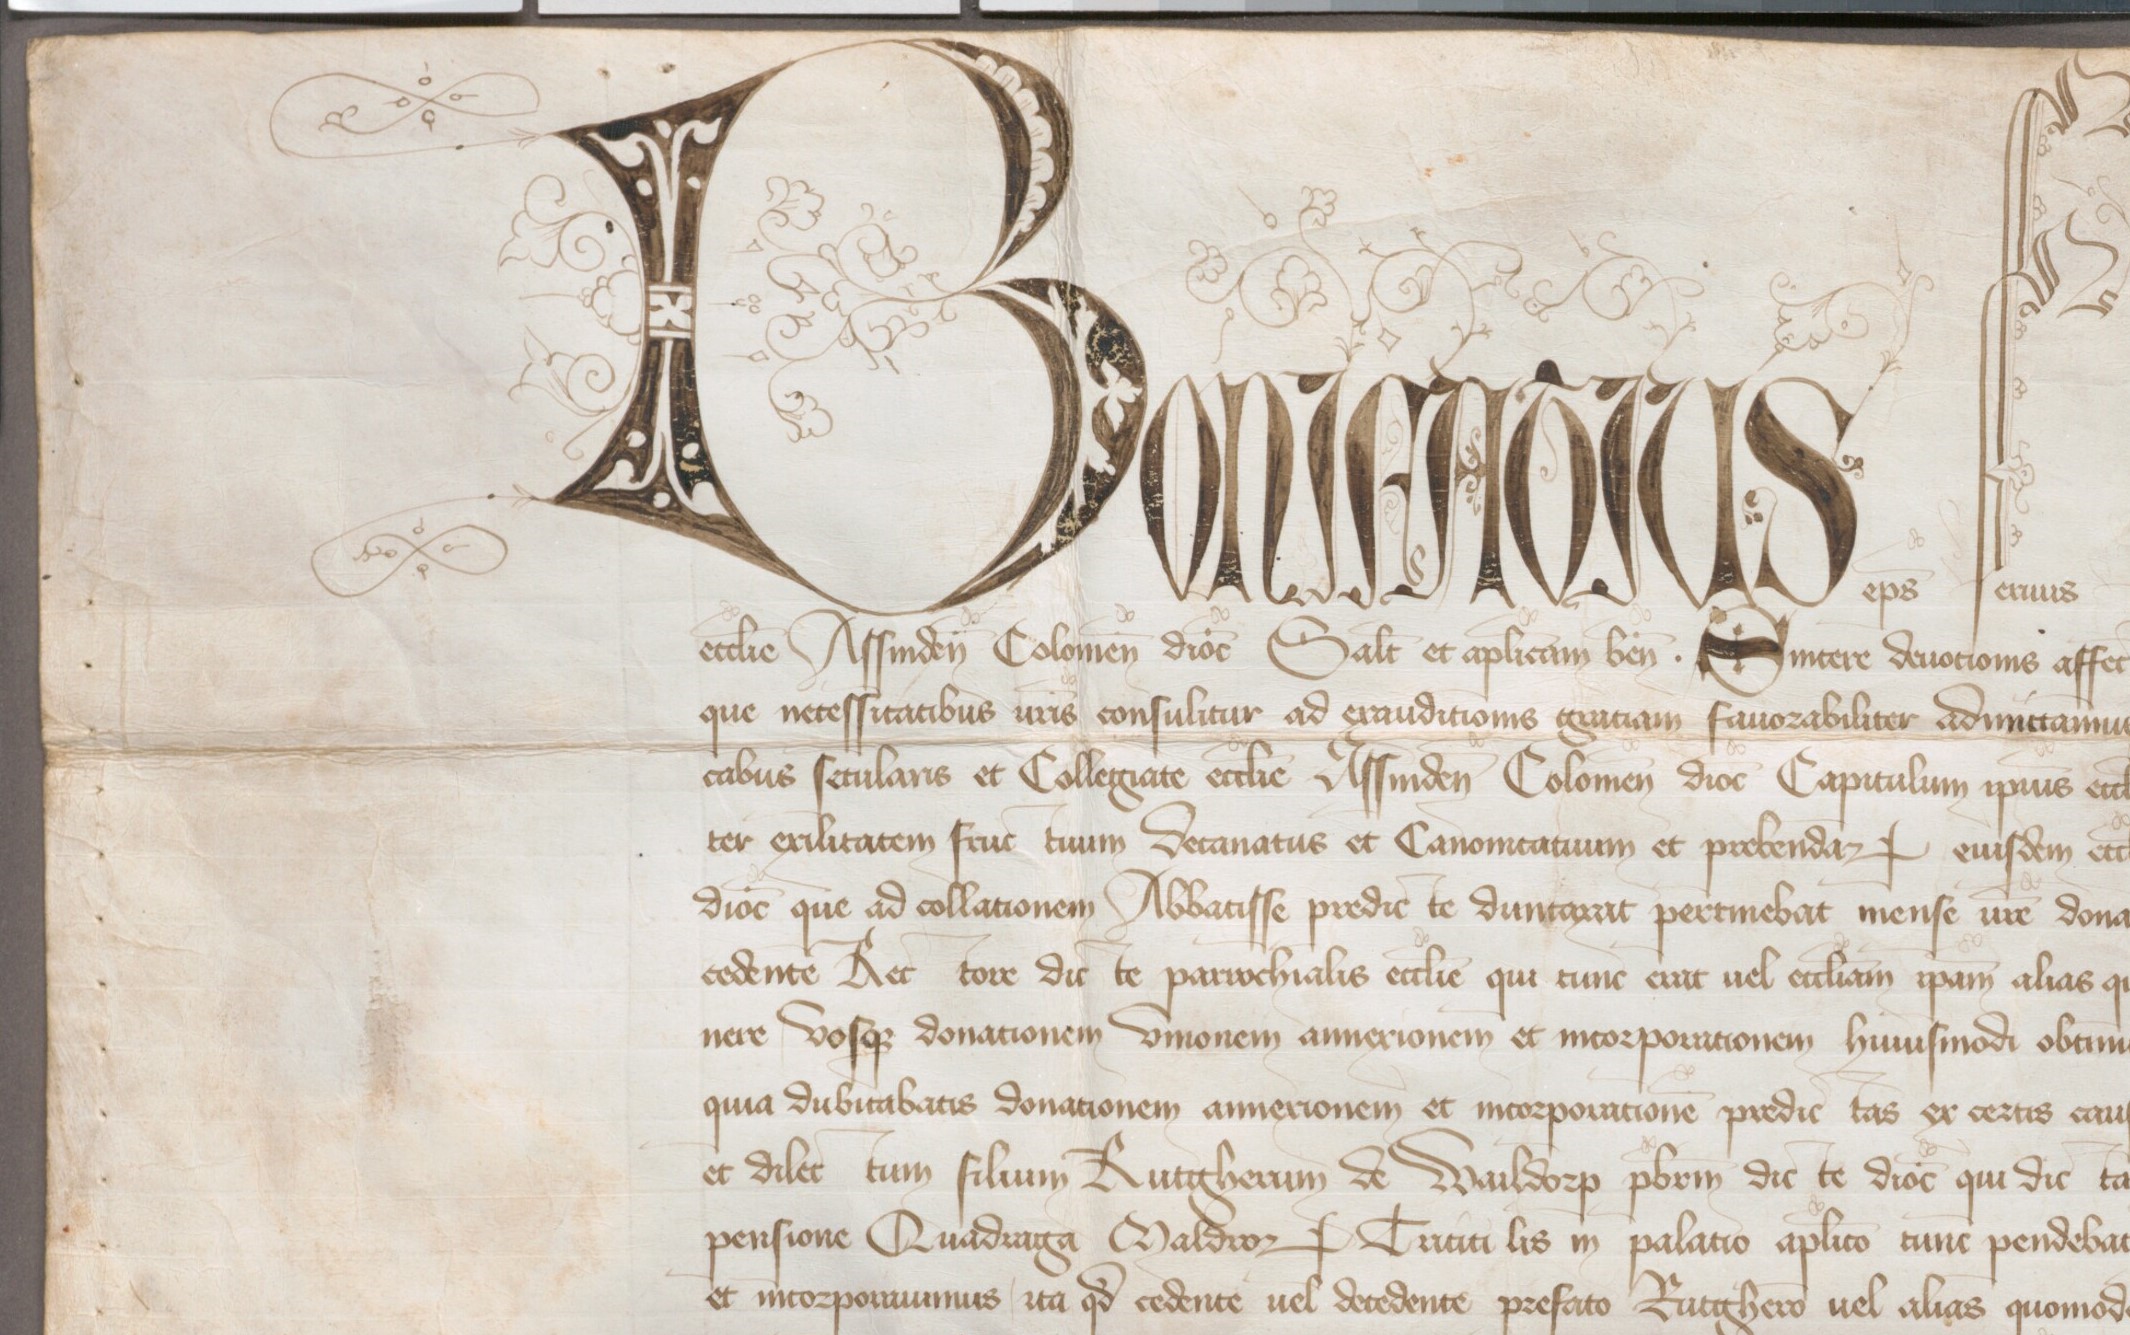 Bonifatius ep̄s Seruus
ecclīe Assindeñ Coloniēn diōc Salt̄ et ap̄licam beñ. Sincere deuotionis affec
que necessitatibus ur̄is consulitur ad exauditionis gratiam fauorabiliter admittamus
cabus secularis et Collegiate ecclīe Assindeñ Coloniēn diōc Capitulum ip̄ius eccl
ter exilitatem fruc tuum Decanatus et Canonicatuum et prebendaꝝ eiusdem eccl
diōc que ad collationem Abbatisse predic te duntaxat pertinebat mense ur̄e dona
cedente Rec tore dic te parrochialis ecclīe qui tunc erat uel eccl̄iam ip̄am alias qu
nere vosqꝫ donationem vnionem annexionem et incorporationem huiusmodi obtinu
quia dubitabatis donationem annexionem et incorporationē predic tas ex certis cau
et dilec tum filium Rutgherum de Waildorp p̄brm dic te diōc qui dic ta
pensione Quadraga Maldroꝝ Tritici lis in palatio ap̄lico tunc pendebat
et incorporauimus ita qd̄ cedente uel decedente prefato Rutghero uel alias quomod